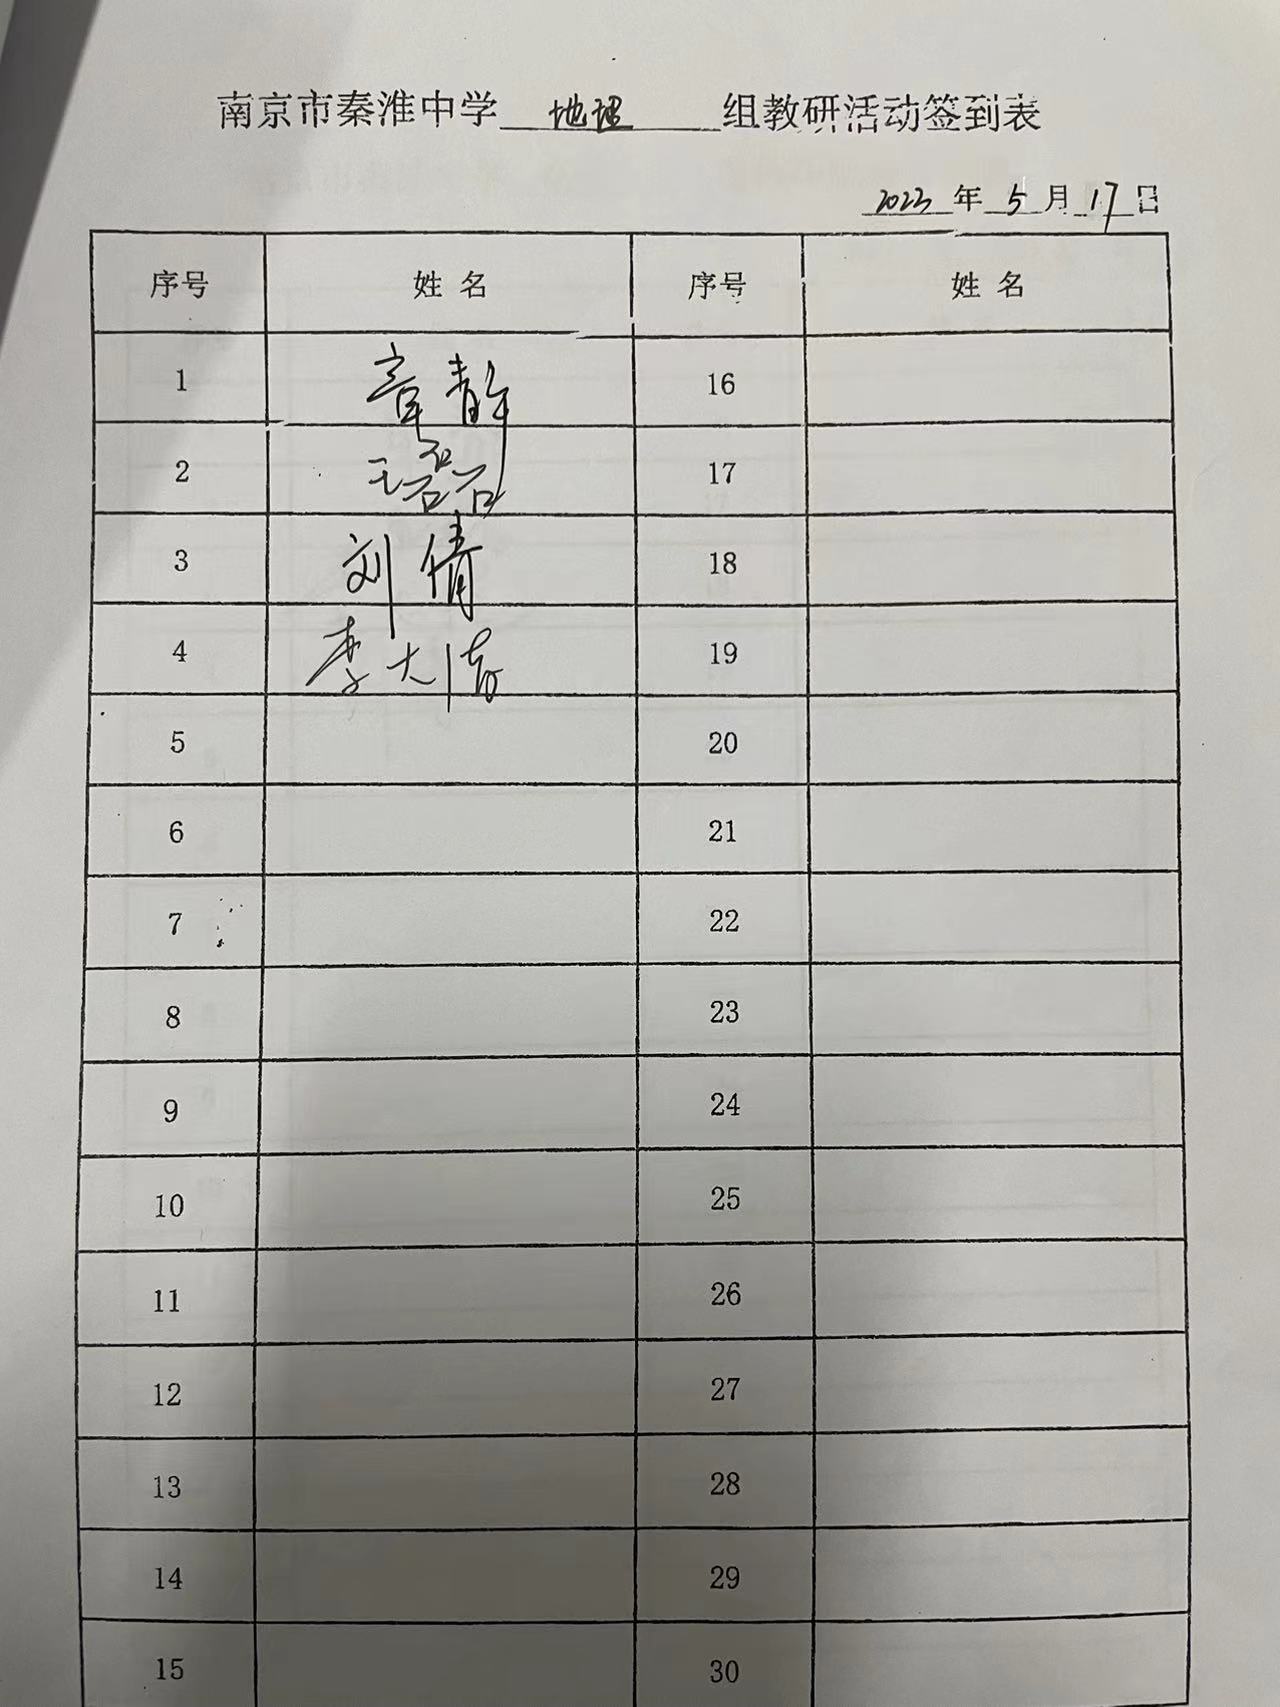 南京市秦淮中学 地理 组教研活动签到表
2023 年 5 月 17 日
序号 姓名 序号 姓名
1 章静 16
2 王磊 17
3 刘倩 18
4 李大 19
5 20
6 21
7 22
8 23
9 24
10 25
11 26
12 27
13 28
14 29
15 30